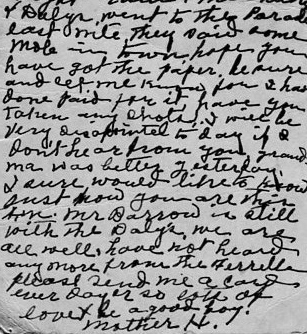 & Dalys, went to the Parade
last nite, they said some
mob in town, hope you
have got the paper, be sure
and let me know, for I have
done paid for it, have you
taken any shots. I will be
very disapointed to day if I
don't hear from you, grand
ma was better yesterday,
I sure would like to know
just how you are this
time. Mr Darrow is still
with the Dalys, we are
all well, have not heard
any more from the Ferrells
please send me a card
ever day or so lots of
love & be a good boy.
Mother H.